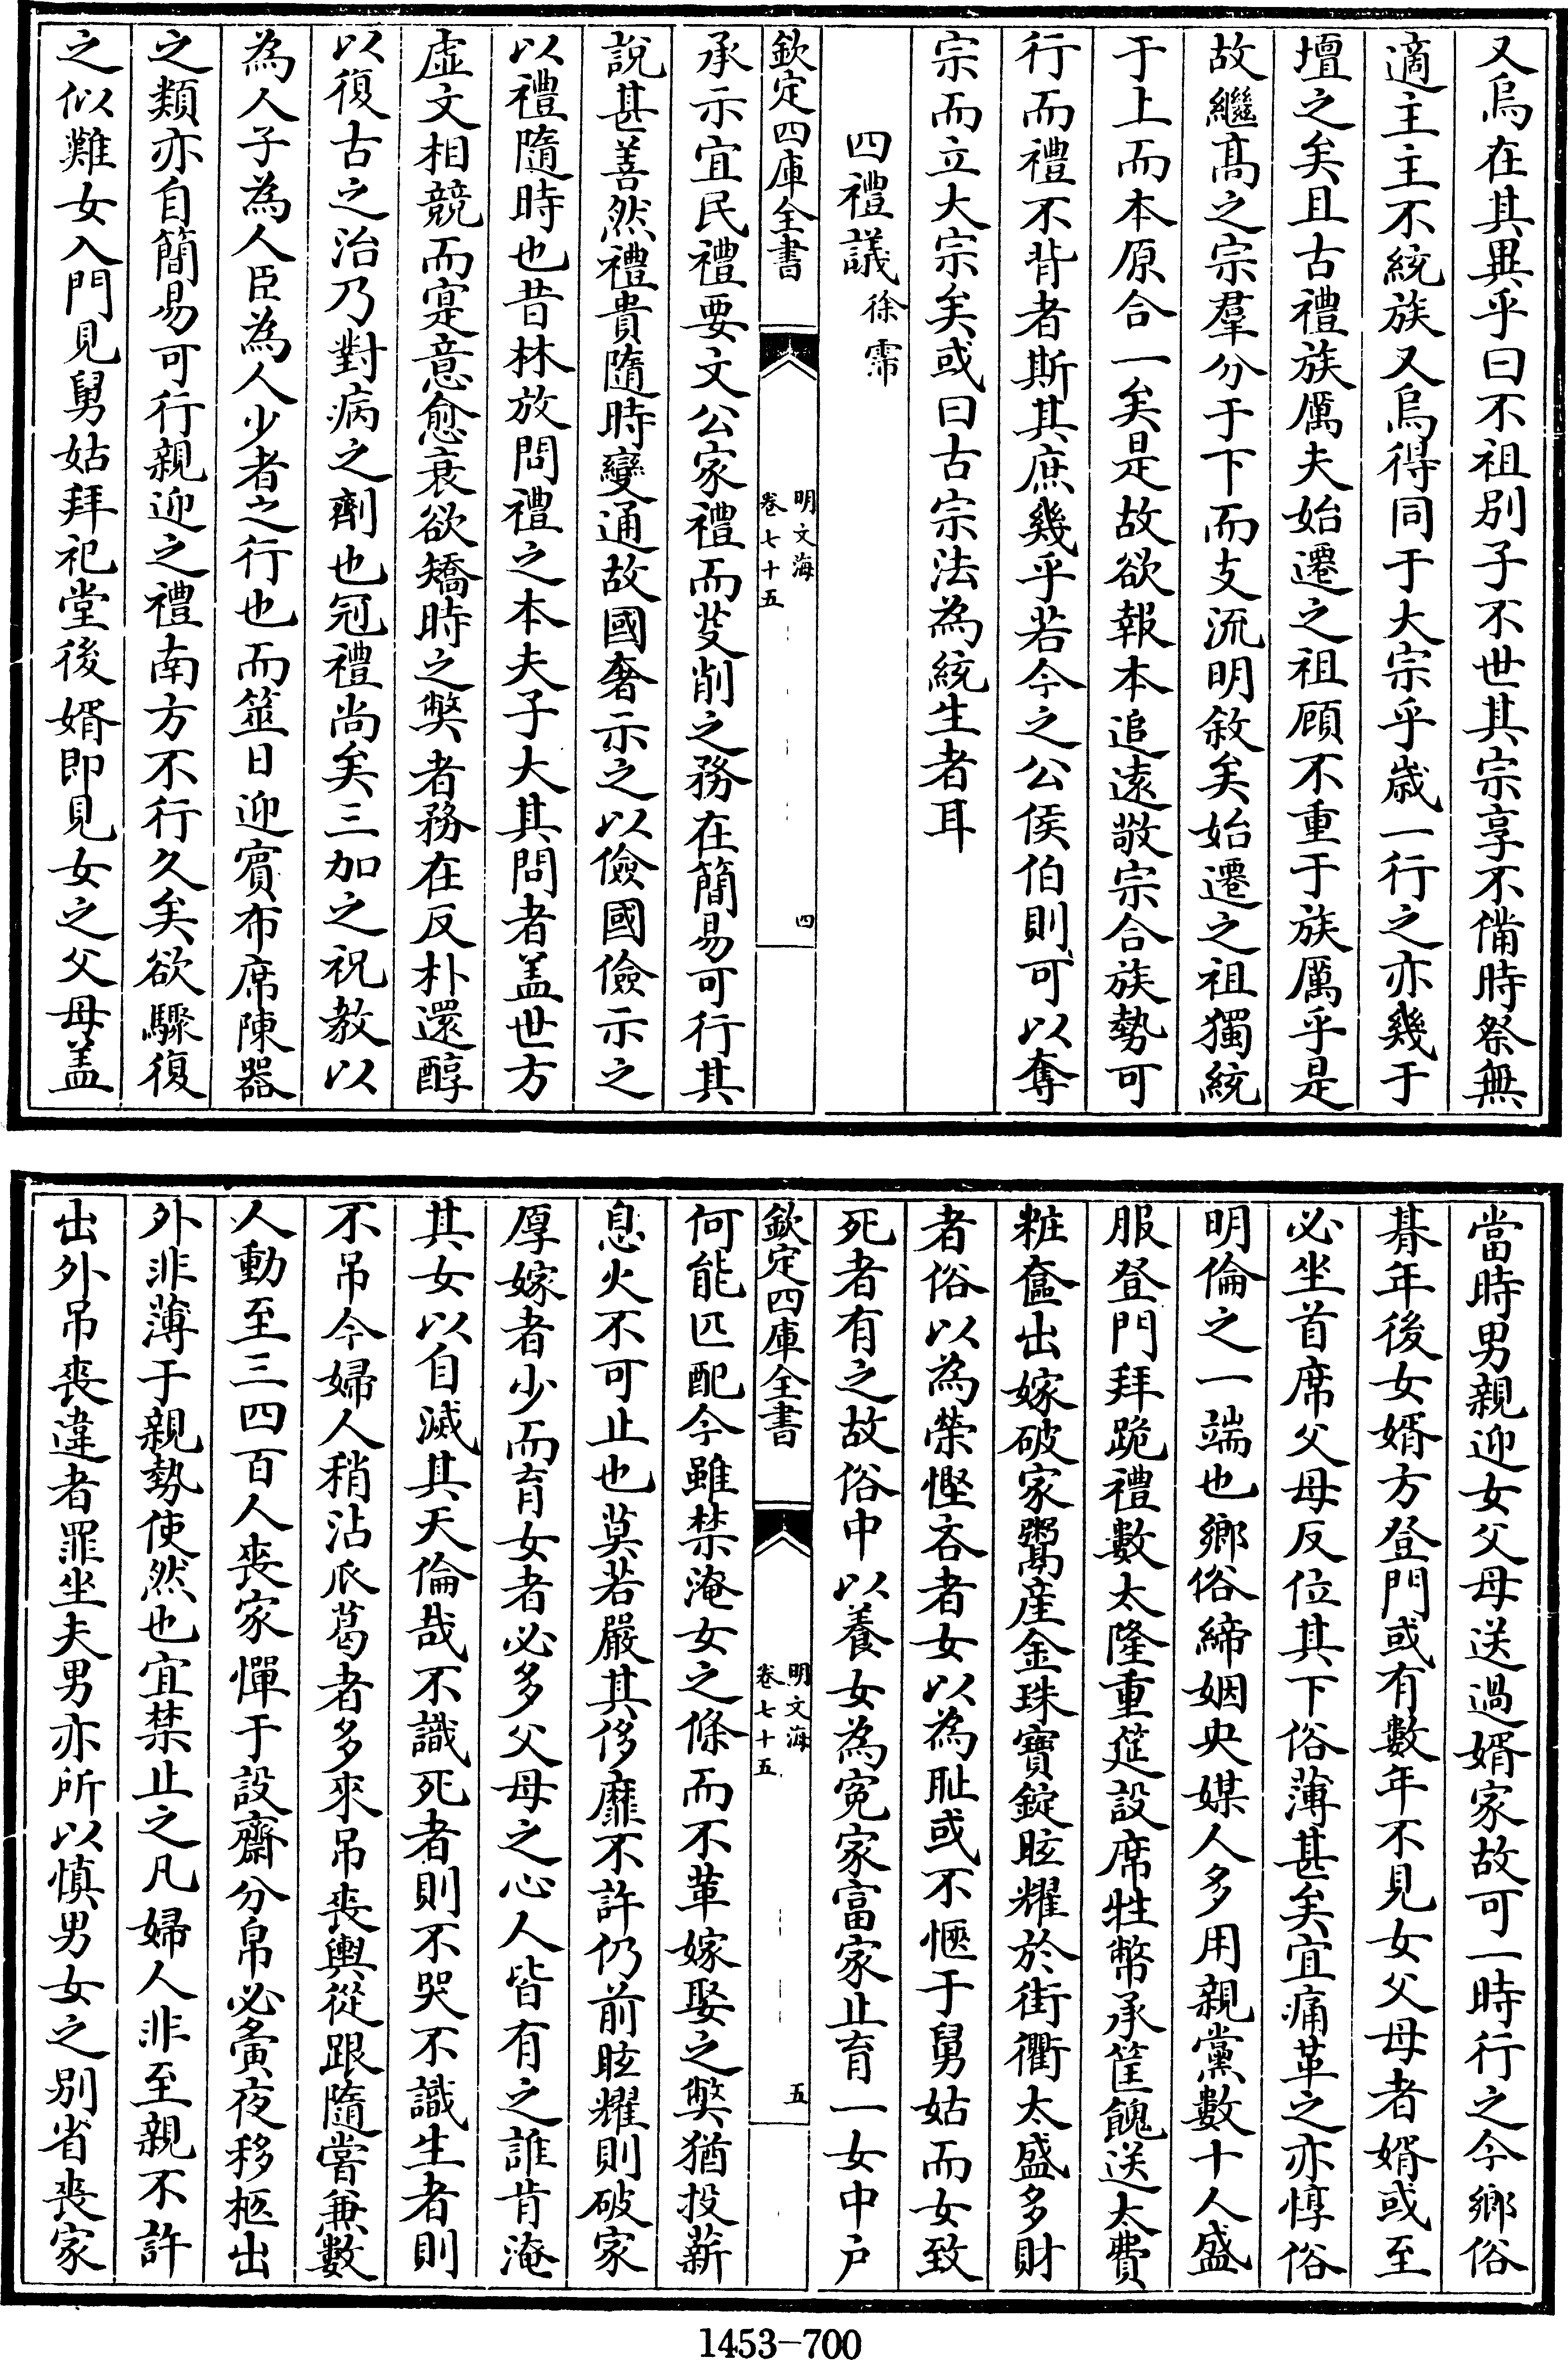 又烏在其異乎曰不祖别子不世其宗享不備時祭無
適主主不統族又烏得同于大宗乎歳一行之亦幾于
壇之矣且古禮族厲夫始遷之祖顧不重于族厲乎是
故繼髙之宗羣分于下而支流明敘矣始遷之祖獨統
于上而本原合一矣是故欲報本追逺敬宗合族勢可
行而禮不背者斯其庶幾乎若今之公侯伯則可以奪
宗而立大宗矣或曰古宗法為統生者耳
四禮議 徐霈
欽定四庫全書 明文海 卷七十五 四
承示宜民禮要文公家禮而芟削之務在簡易可行其
說甚善然禮貴隨時變通故國奢示之以儉國儉示之
以禮隨時也昔林放問禮之本夫子大其問者盖世方
虛文相競而寔意愈衰欲矯時之弊者務在反朴還醇
以復古之治乃對病之劑也冠禮尚矣三加之祝教以
為人子為人臣為人少者之行也而筮日迎賓布席陳器
之類亦自簡易可行親迎之禮南方不行久矣欲驟復
之似難女入門見舅姑拜祀堂後婿即見女之父母盖
當時男親迎女父母送過婿家故可一時行之今鄉俗
朞年後女婿方登門或有數年不見女父母者婿或至
必坐首席父母反位其下俗薄甚矣宜痛革之亦惇俗
明倫之一端也鄉俗締姻央媒人多用親黨數十人盛
服登門拜跪禮數太隆重筵設席牲幣承筐餽送太費
粧奩出嫁破家鬻産金珠寶錠眩耀於街衢太盛多財
者俗以為榮慳吝者女以為耻或不愜于舅姑而女致
死者有之故俗中以養女為寃家富家止育一女中户
欽定四庫全書 明文海 卷七十五 五
何能匹配今雖禁淹女之條而不革嫁娶之弊猶投薪
息火不可止也莫若嚴其侈靡不許仍前眩耀則破家
厚嫁者少而育女者必多父母之心人皆有之誰肯淹
其女以自滅其天倫哉不識死者則不哭不識生者則
不吊今婦人稍沾𤓰葛者多來吊喪輿從跟隨嘗兼數
人動至三四百人喪家憚于設齋分帛必夤夜移柩出
外非薄于親勢使然也宜禁止之凡婦人非至親不許
出外吊喪違者罪坐夫男亦所以慎男女之别省喪家
1453-700